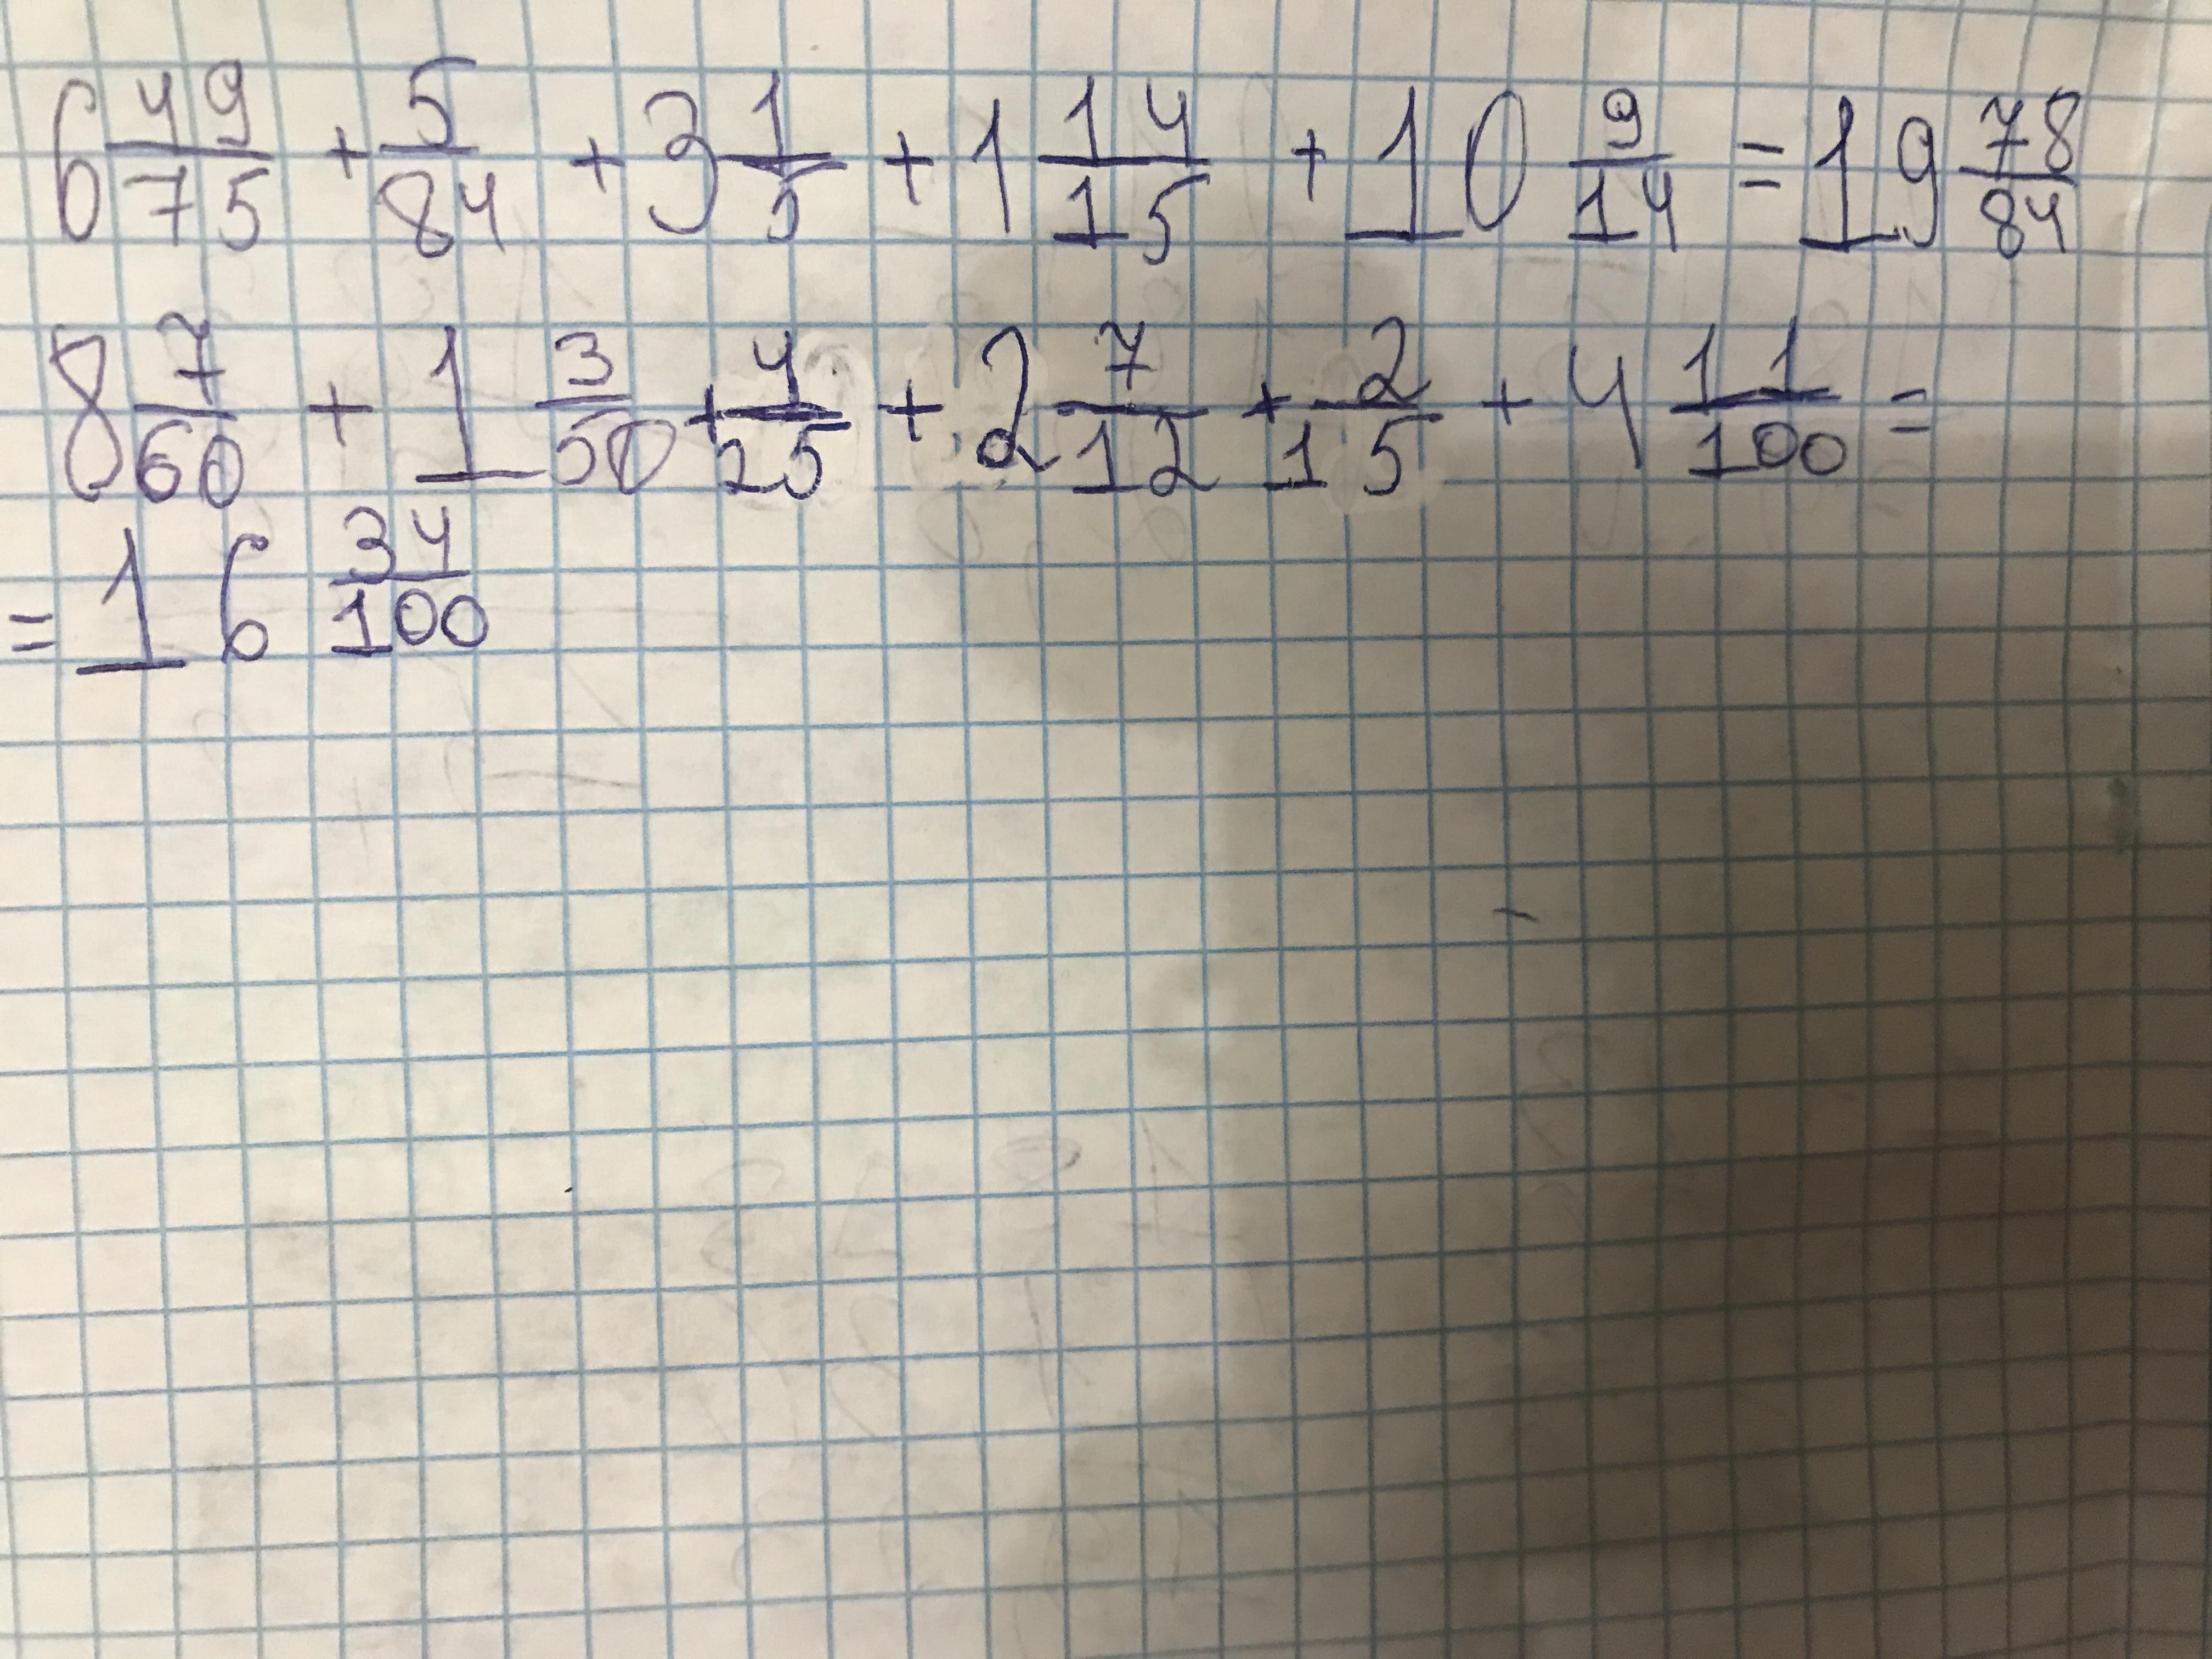 6 49/75 + 5/84 + 3 1/5 + 1 14/15 + 10 9/14 = 19 78/84
8 7/60 + 1 3/50 + 4/25 + 2 7/12 + 2/15 + 4 11/100 =
= 16 34/100